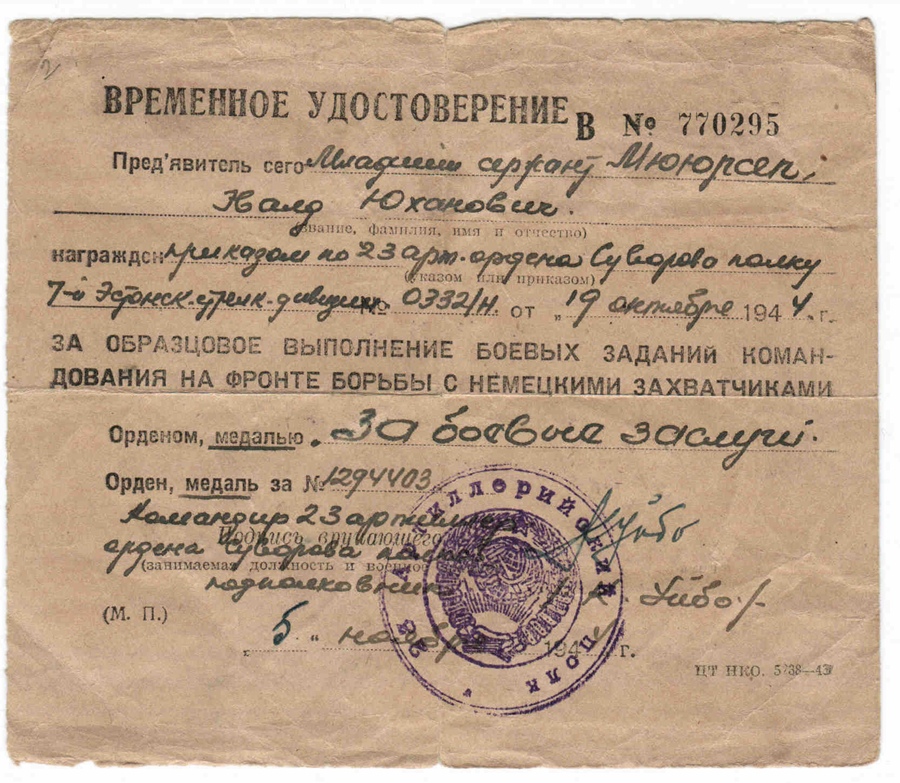 ВРЕМЕННОЕ УДОСТОВЕРЕНИЕ В № 770295
Пред'явитель сего Младший сержант Мююрсеп,
Халд Юханович.
(звание, фамилия, имя и отчество)
награжден приказом по 23 арт. ордена Суворова полку
(указом или приказом)
7-й Эстонск. стрелк. дивизии № 0332/н. от „19 октября 1944 г.
ЗА ОБРАЗЦОВОЕ ВЫПОЛНЕНИЕ БОЕВЫХ ЗАДАНИЙ КОМАН-
ДОВАНИЯ НА ФРОНТЕ БОРЬБЫ С НЕМЕЦКИМИ ЗАХВАТЧИКАМИ
Орденом, медалью „За боевые заслуги.
Орден, медаль за № 1294403
Командир 23 артиллер
Подпись вручающего
ордена Суворова полка
(занимаемая должность и военное
подполковник Уйбо/
(М. П.)
„5" ноября 194 г.
ЦТ НКО.
23 АРтиллерийский полк